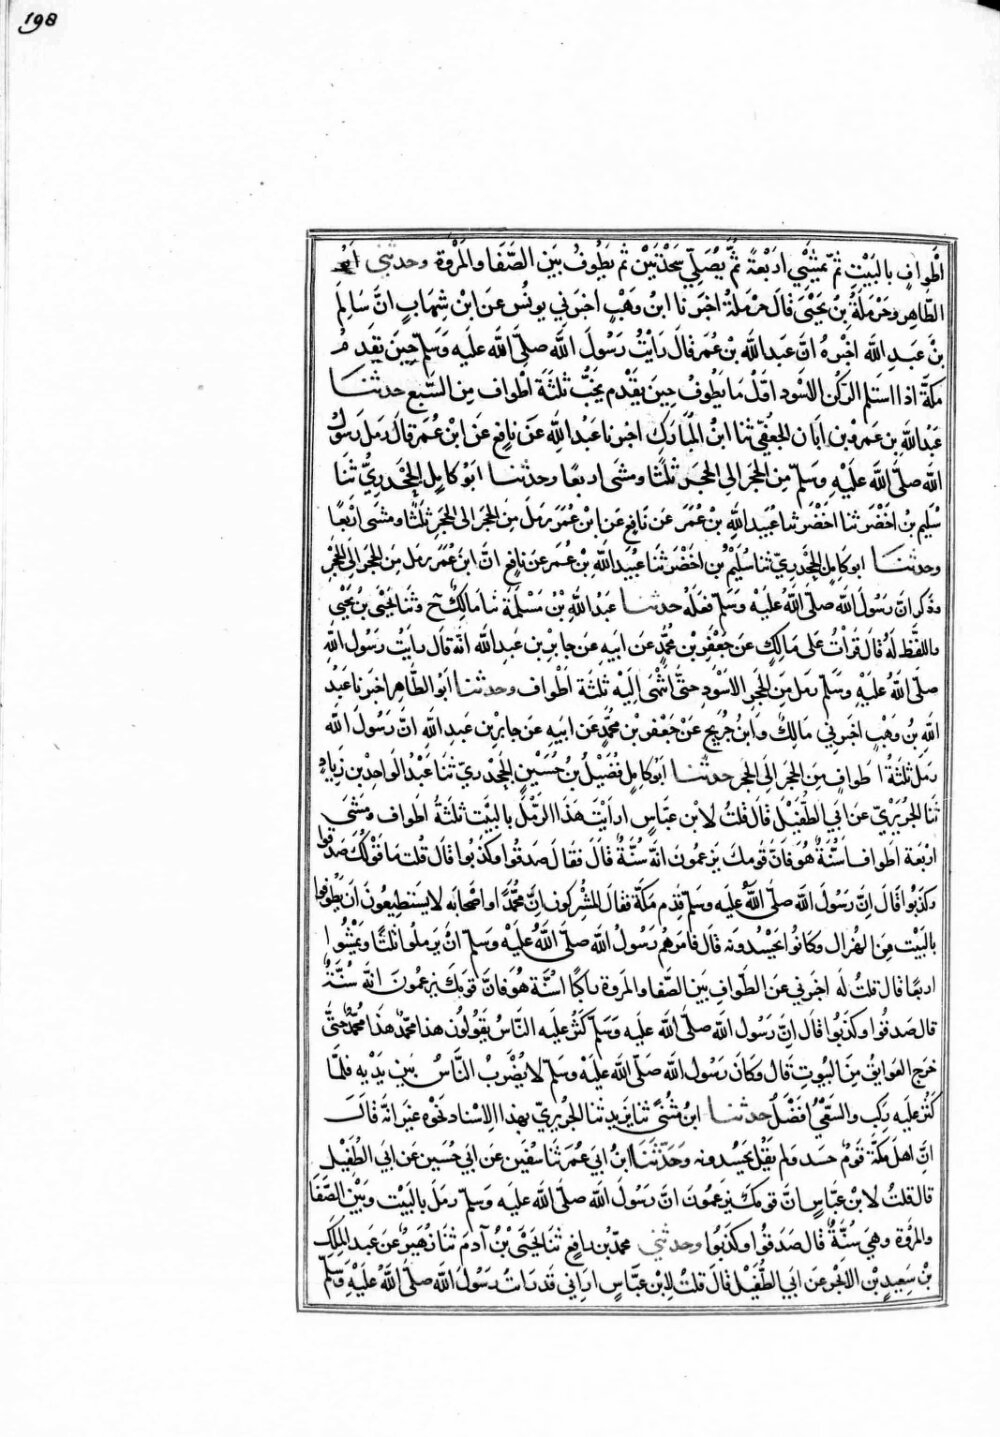 198
اَطْوافٍ بالبَيْتِ ثمّ يمشِي اَرْبَعَةً ثُمَّ يُصَلِّي سَجْدَتَيْنِ ثُم يَطُوفُ بَيْن الصَّفَا والمَرْوَة وحدثني ابُو
الطّاهِر وحَرْمَلَةُ بِنُ يَحْيَى قَالَ حَرْمَلَةُ اخبَرنا ابنُ وَهْبٍ اخبَرَني يونُس عَن ابْن شِهَابٍ انَّ سَالِمَ
بْنَ عَبدِ الله اخبَرهُ انَّ عَبدَ الله بْن عُمَر قَالَ رَايْتُ رَسُولَ الله صلّى الله عَليْه وَسَلّم حِينَ يَقدَمُ
مكَّةَ اذا استَلم الركنَ الاسْود اوّلَ مَا يَطُوفُ حِينَ يَقْدَم يَخُبُّ ثَلثَةَ اطْوافٍ مِن السَّبع حدثنَا
عَبدُ اللهِ بن عمَر بْن اَبَان الجُعفِيّ ثنا ابنُ المُبَارَكِ اخبَرنا عُبَيدُ اللهِ عَن نَافِعٍ عَن ابْن عُمَر قالَ رَمَل رَسُولُ
الله صَلَّى اللهُ عَليْهِ وَسَلّم مِن الحجَر الِى الحجَر ثلَثًا ومشى اربعًا وحدثنا ابو كامِل الجَحْدرِيُّ ثنَا
سُلَيم بن اَخْضَر ثنا عُبَيد اللهِ بْن عُمَرَ عَن نَافِعٍ عَن ابْن عُمَر رمَلَ مِن الحجَر الى الحجَرِ ثلَثًا ومشَى اَرْبَعًا
وحدثنا ابو كامِلٍ الجَحْدَرِيّ ثنا سُلَيْمُ بن اخْضَر ثَنَا عُبَيد اللهِ بْن عُمَر عَن نافِع انَّ ابنَ عُمَر رمَل مِنَ الحجَر الى الحجَرِ
وذكر انَ رَسُولَ الله صَلَّى اللهُ عَلَيْه وَسَلّم فعَلَهُ حدثنا عَبْدُ اللهِ بْنُ مَسْلَمَةَ ثنا مَالِكٌ ح وثنا يَحْيَى بنُ يَحْيَى
واللّفْظ لَهُ قَالَ قَرَأْتُ عَلى مَالِكٍ عَن جَعْفَرِ بْن مُحَمّدٍ عَن ابيهِ عَن جابِرِ بن عَبدِ الله انّه قَال رَايْتُ رَسُولَ اللهِ
صلّى اللهُ عَلَيْهِ وَسَلّم رمَل مِنَ الحجَر الاسْوَدِ حتّى انْتَهَى الَيْه ثَلثَةَ اطْواف وحدثنا ابو الطّاهِر اخبرنا عَبدُ
اللهِ بْنُ وَهْبٍ اخبَرني مَالِكٌ وَابنُ جُرَيجٍ عَنْ جَعْفَر بْن مُحَمّدٍ عَن ابيهِ عَن جابرِ بن عَبدِ اللهِ انّ رَسُولَ الله
رمَلَ ثلثَةَ اطوافٍ مِنَ الحجَر الى الحجَر حدثنا ابُو كامِلٍ فُضَيْلُ بنُ حُسَيْنٍ الجَحْدَرِيّ ثنَا عَبْدُ الوَاحِد بن زيادٍ
ثنا الجُرَيْرِيّ عَن ابَي الطّفَيْل قَالَ قلتُ لابْن عبّاسٍ ارايْتَ هَذا الرَمَل بالبَيْتِ ثلثَةُ اطواف ومَشيَ
اربَعة اطواف اَسُنَّةٌ هُوَ فانّ قَومَكَ يَزعمُونَ انّه سُنَّةٌ قَالَ فَقَال صَدقُوا وكَذَبُوا قَالَ قُلت مَا قَولُكَ صَدقُوا
وكَذَبُوا قَالَ اِنَّ رَسُولَ الله صلّى الله عَليْه وَسَلّم قَدِم مَكَّة فقالَ المُشرِكونَ اِنَّ مُحَمَّدًا واصْحَابَه لا يَستطِيعُونَ اَن يَطُوفُوا
بالبَيْتِ مِنَ الهُزال وكَانُوا يَحْسُدُونَه قَال فامَرهُم رَسُولُ الله صَلّى اللهُ عَليْه وَسَلّم انْ يَرمُلُوا ثَلَثًا ويَمْشُوا
اربعًا قَال قلتُ لَه اخبرني عَن الطّوافِ بَين الصّفا والمَروة راكبًا اسُنَّة هُوَ فانّ قَومَكَ يَزعمُونَ انّه سُنَّةٌ
قال صَدقُوا وكَذبُوا قَال اِنَّ رَسُولَ الله صَلّى الله عَليْه وَسَلّم كَثُر عَليه النّاسُ يَقُولُون هذا محمّدٌ هَذَا مُحَمّدٌ حتَّى
خرَج العَواتِق مِنَ البُيوتِ قَال وكانَ رَسُولُ الله صَلّى الله عَليْه وَسَلّم لا يُضْرَبُ النَّاسُ بَيْنَ يَدَيْه فلَمَّا
كثُر عَليه ركِبَ والسّعْيُ افضَلُ حدثنا ابنُ مُثنّى ثنا يَزيد ثَنا الجُرَيرِيّ بهذا الاِسْناد نحْوَه غَيرَ انّه قَالَ
انّ اهلَ مكَّة قَومُ حَسَد ولَم يقُل يَحسُدونه وحَدّثَنَا ابنُ ابي عُمَر ثنا سُفْين عَن ابي حُسَين عَن ابي الطُفَيْل
قال قلتُ لابْن عبَّاسٍ انّ قومَكَ يَزعمُونَ انّ رَسُولَ الله صَلّى الله عَليْه وسَلّم رَمَل بالبَيْتِ وبَيْنَ الصَّفَا
والمَرْوة وهيَ سُنَّةٌ قَال صَدقُوا وكَذَبُوا وحدثني محمّدُ بن رافعٍ ثنَا يَحْيَى بْنُ آدمَ ثنَا زُهَيرٌ عَن عَبدِ المَلِكِ
بْن سَعِيدِ بْن الابْجَر عَن ابي الطُّفَيْل قَالَ قلتُ لِابْنِ عبَّاسٍ ارَاني قَد رَايتُ رَسُولَ الله صَلَّى اللهُ عَلَيْهِ وَسَلّم